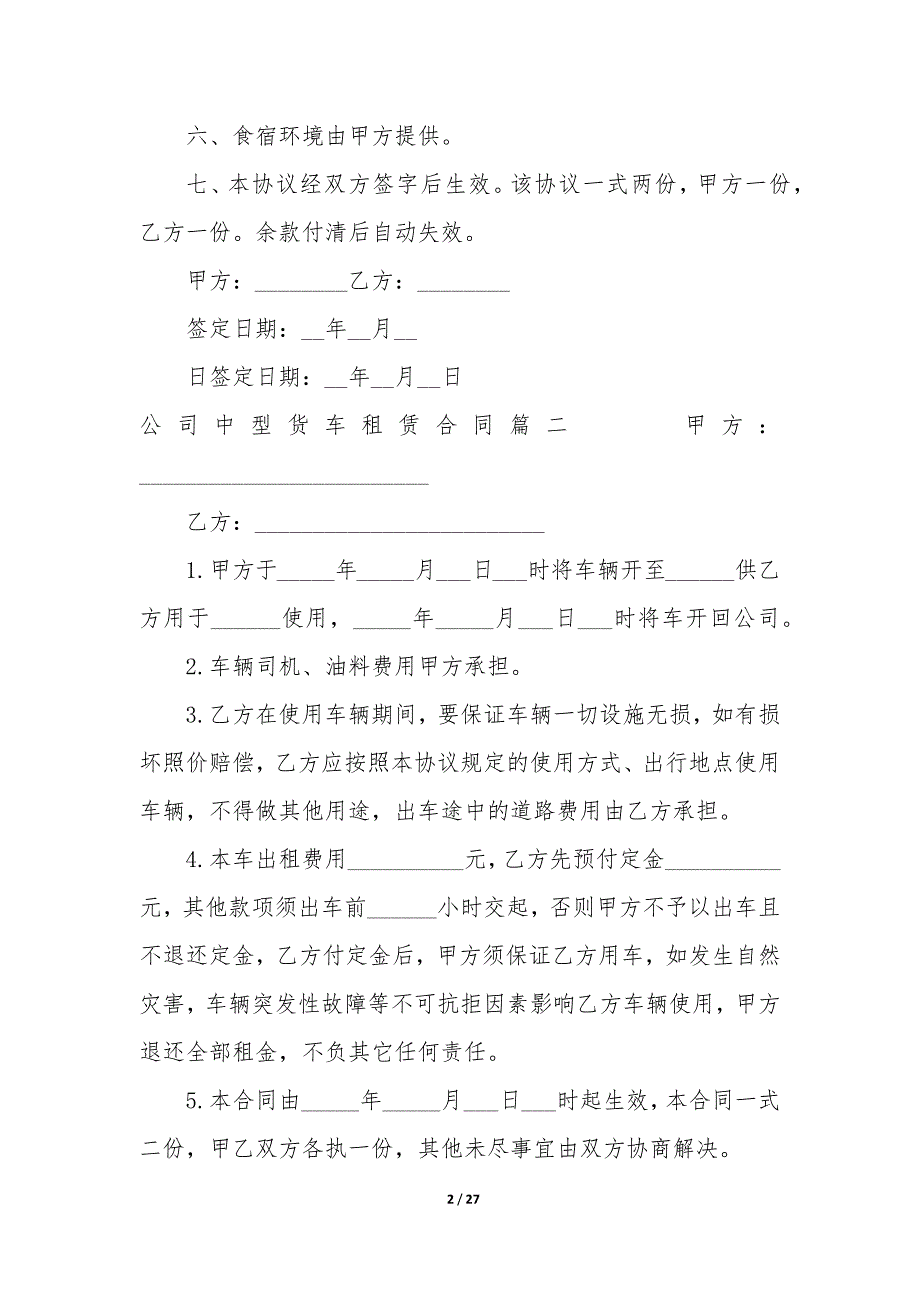 六、食宿环境由甲方提供。
七、本协议经双方签字后生效。该协议一式两份，甲方一份，
乙方一份。余款付清后自动失效。
甲方：________乙方：________
签定日期：__年__月__
日签定日期：__年__月__日
公司中型货车租赁合同篇二 甲方：
_________________________
乙方：_________________________
1.甲方于_____年_____月___日___时将车辆开至______供乙
方用于______使用，_____年_____月___日___时将车开回公司。
2.车辆司机、油料费用甲方承担。
3.乙方在使用车辆期间，要保证车辆一切设施无损，如有损
坏照价赔偿，乙方应按照本协议规定的使用方式、出行地点使用
车辆，不得做其他用途，出车途中的道路费用由乙方承担。
4.本车出租费用__________元，乙方先预付定金__________
元，其他款项须出车前______小时交起，否则甲方不予以出车且
不退还定金，乙方付定金后，甲方须保证乙方用车，如发生自然
灾害，车辆突发性故障等不可抗拒因素影响乙方车辆使用，甲方
退还全部租金，不负其它任何责任。
5.本合同由_____年_____月___日___时起生效，本合同一式
二份，甲乙双方各执一份，其他未尽事宜由双方协商解决。
2 / 27